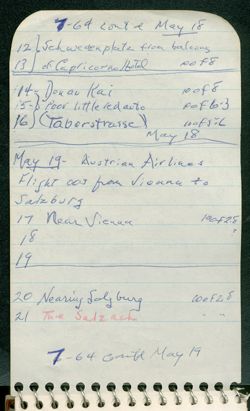 7-64 cont'd May 18
12 Schwedenplatz from balcony
13 of Capricorno Hotel 100 f 8
14- Donau Kai 100 f 8
15- Poor little red auto 100 f 6.3
16 (Taborstrasse) 100 f 5.6
May 18
May 19- Austrian Airlines
Flight from Vienna to
Salzburg
17 Near Vienna 100 f 28
18 ?
19
20 Nearing Salzburg 100 f 28
21 The Salzach " "
7-64 cont'd May 19